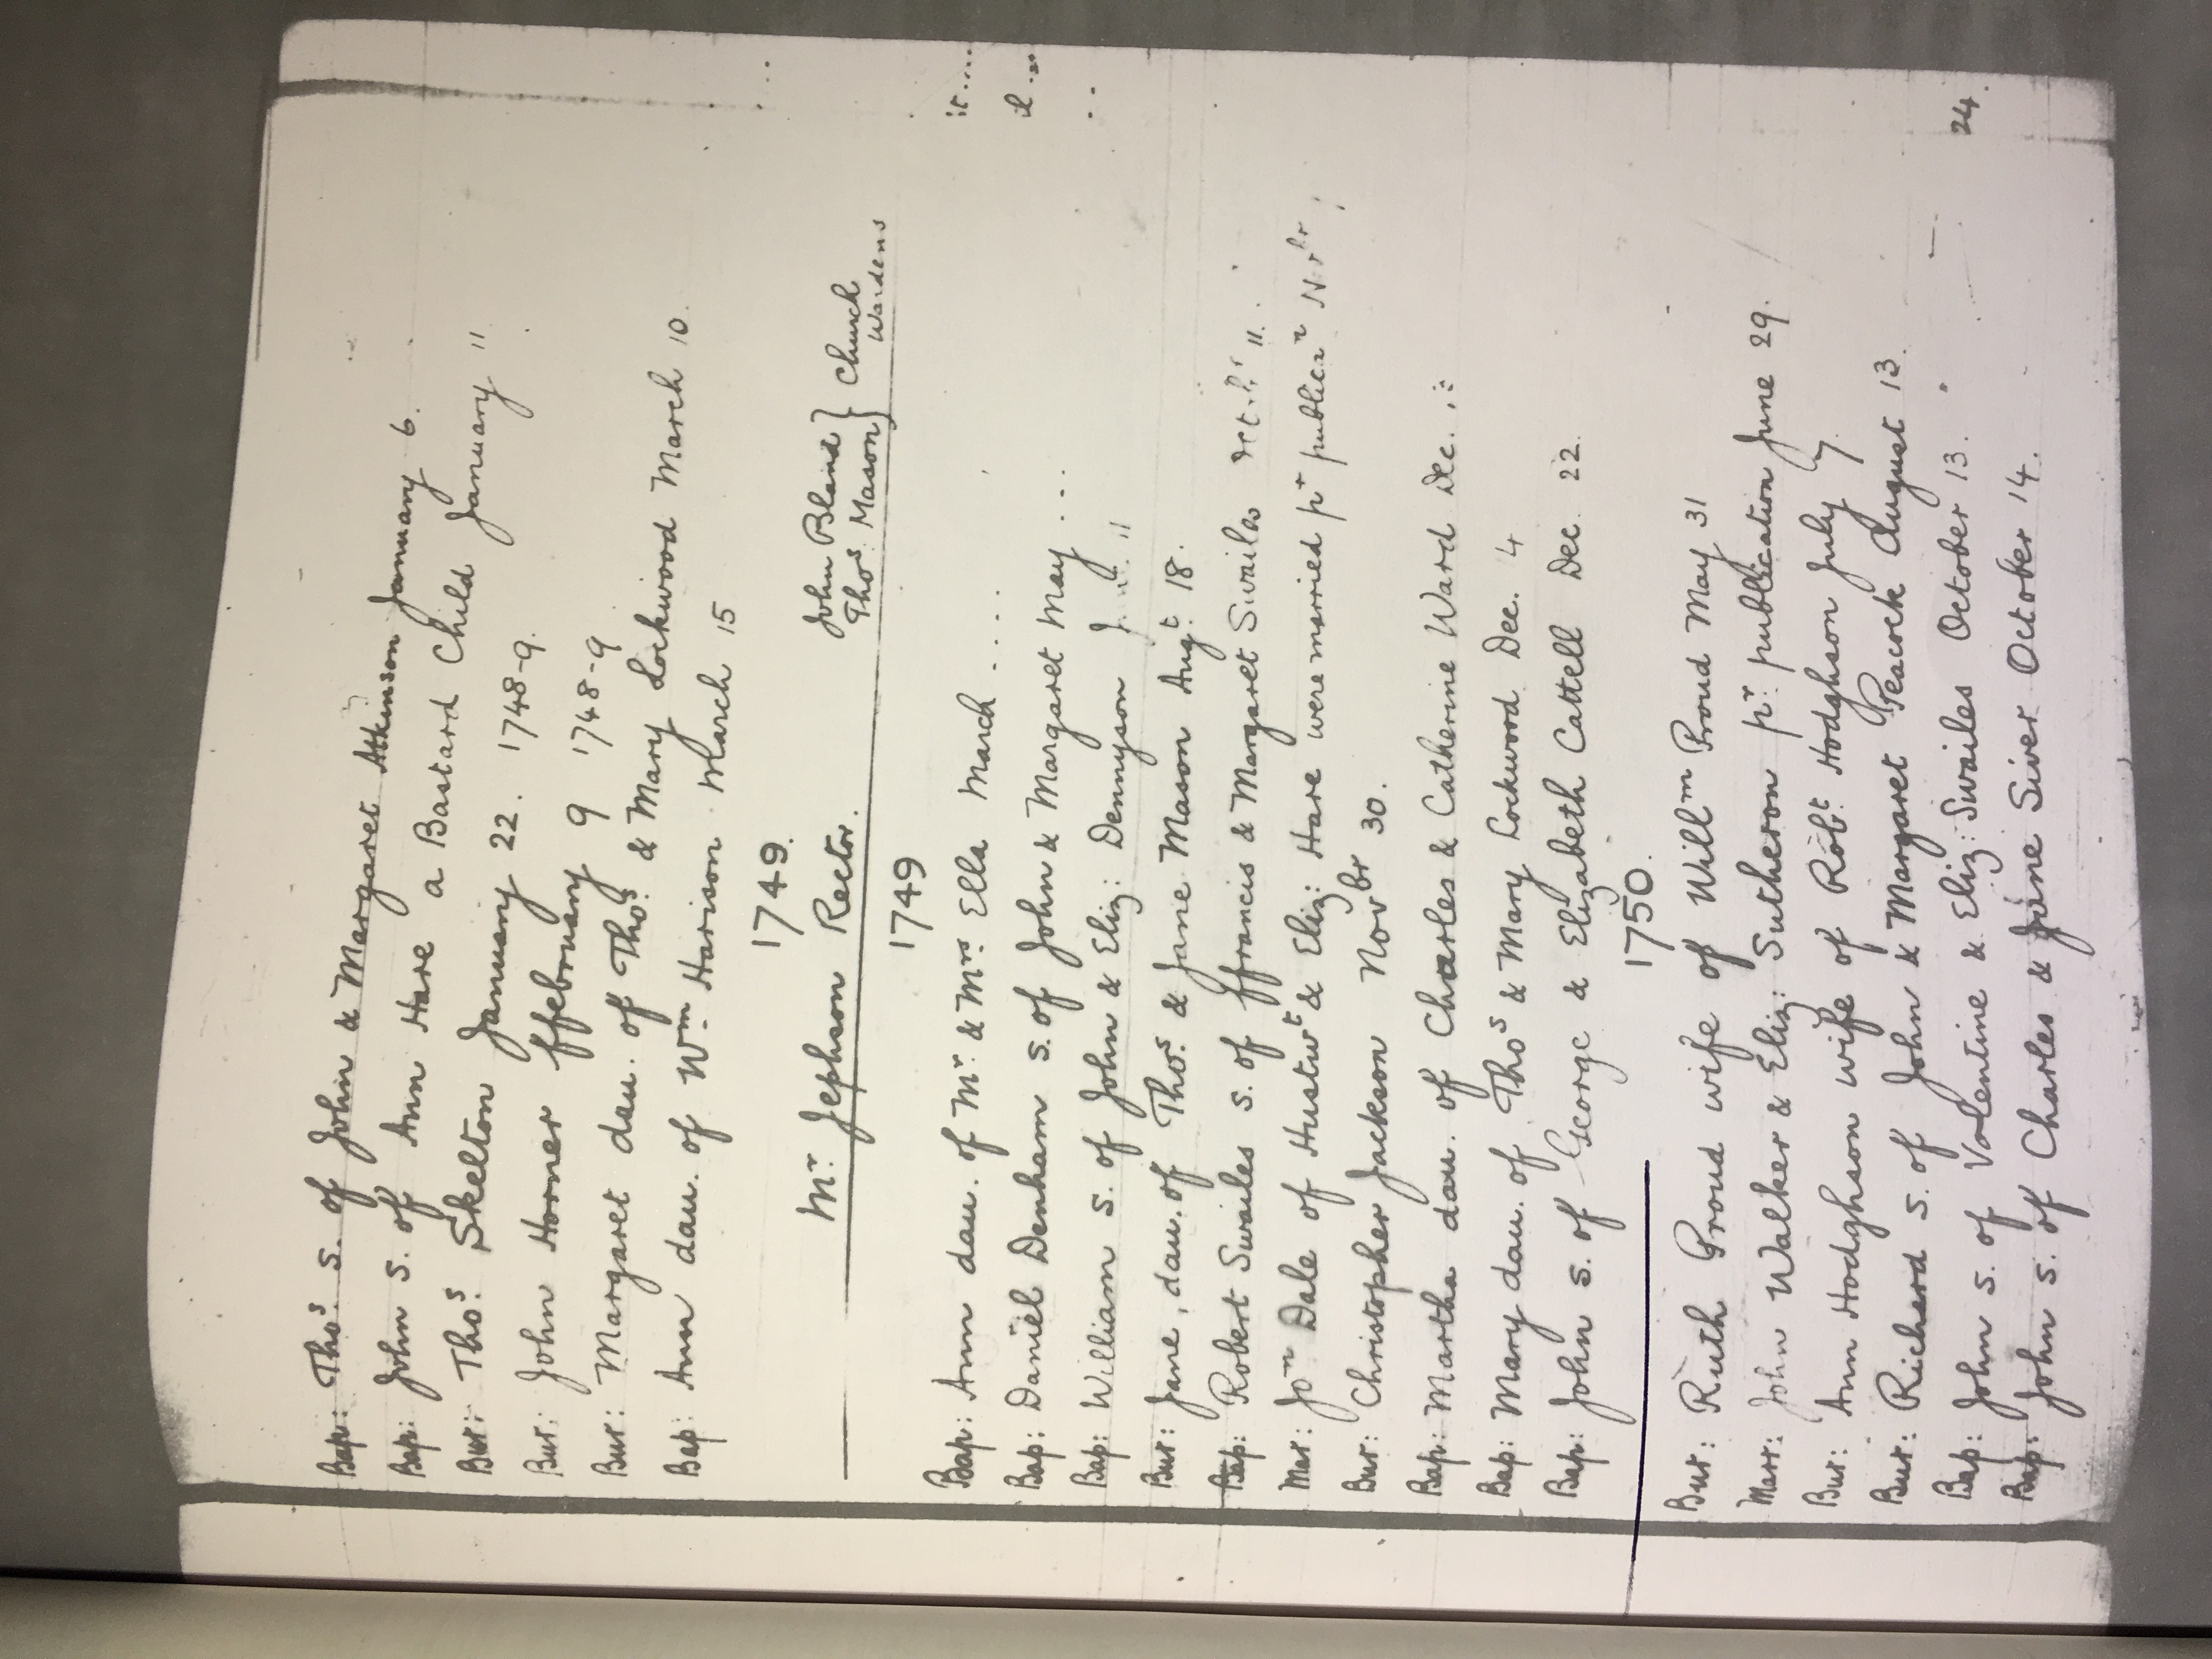 Bap: Thos. s. of John & Margaret Atkinson January 6.
Bap: John s. of Ann Hare a Bastard Child January 11
Bur: Thos. Skelton January 22. 1748-9.
Bur: John Horner ffebruary 9 1748-9
Bur: Margaret dau. of Thos. & Mary Lockwood March 10.
Bap: Ann dau. of Wm. Harison March 15
1749.
Mr. Jephson Rector. John Bland } Church
Thos. Mason } Wardens
1749
Bap: Ann dau. of Mr. & Mrs. Ella March ....
Bap: Daniel Denham s. of John & Margaret May ...
Bap: William s. of John & Eliz: Dennyson J.... 11
Bur: Jane, dau. of Thos. & Jane Mason Augt. 18.
Bap: Robert Swailes s. of ffrancis & Margaret Swailes 11.
Mar: Jon Dale of Hustwt & Eliz: Hare were married pr publican
Bur: Christopher Jackson Novbr 30.
Bap: Martha dau. of Charles & Catherine Ward Dec.
Bap: Mary dau. of Thos & Mary Lockwood Dec. 4
Bap: John s. of George & Elizabeth Cattell Dec. 22.
1750.
Bur: Ruth Proud wife of Willm Proud May 31
Marr: John Walker & Eliz: Sutheron pr. publication June 29.
Bur: Ann Hodghson wife of Robt. Hodghson July 7.
Bur: Richard s. of John & Margaret Peacock August 13.
Bap: John s. of Valentine & Eliz: Swailes October 13.
Bap: John s. of Charles & Jane Siver October 14.
24.